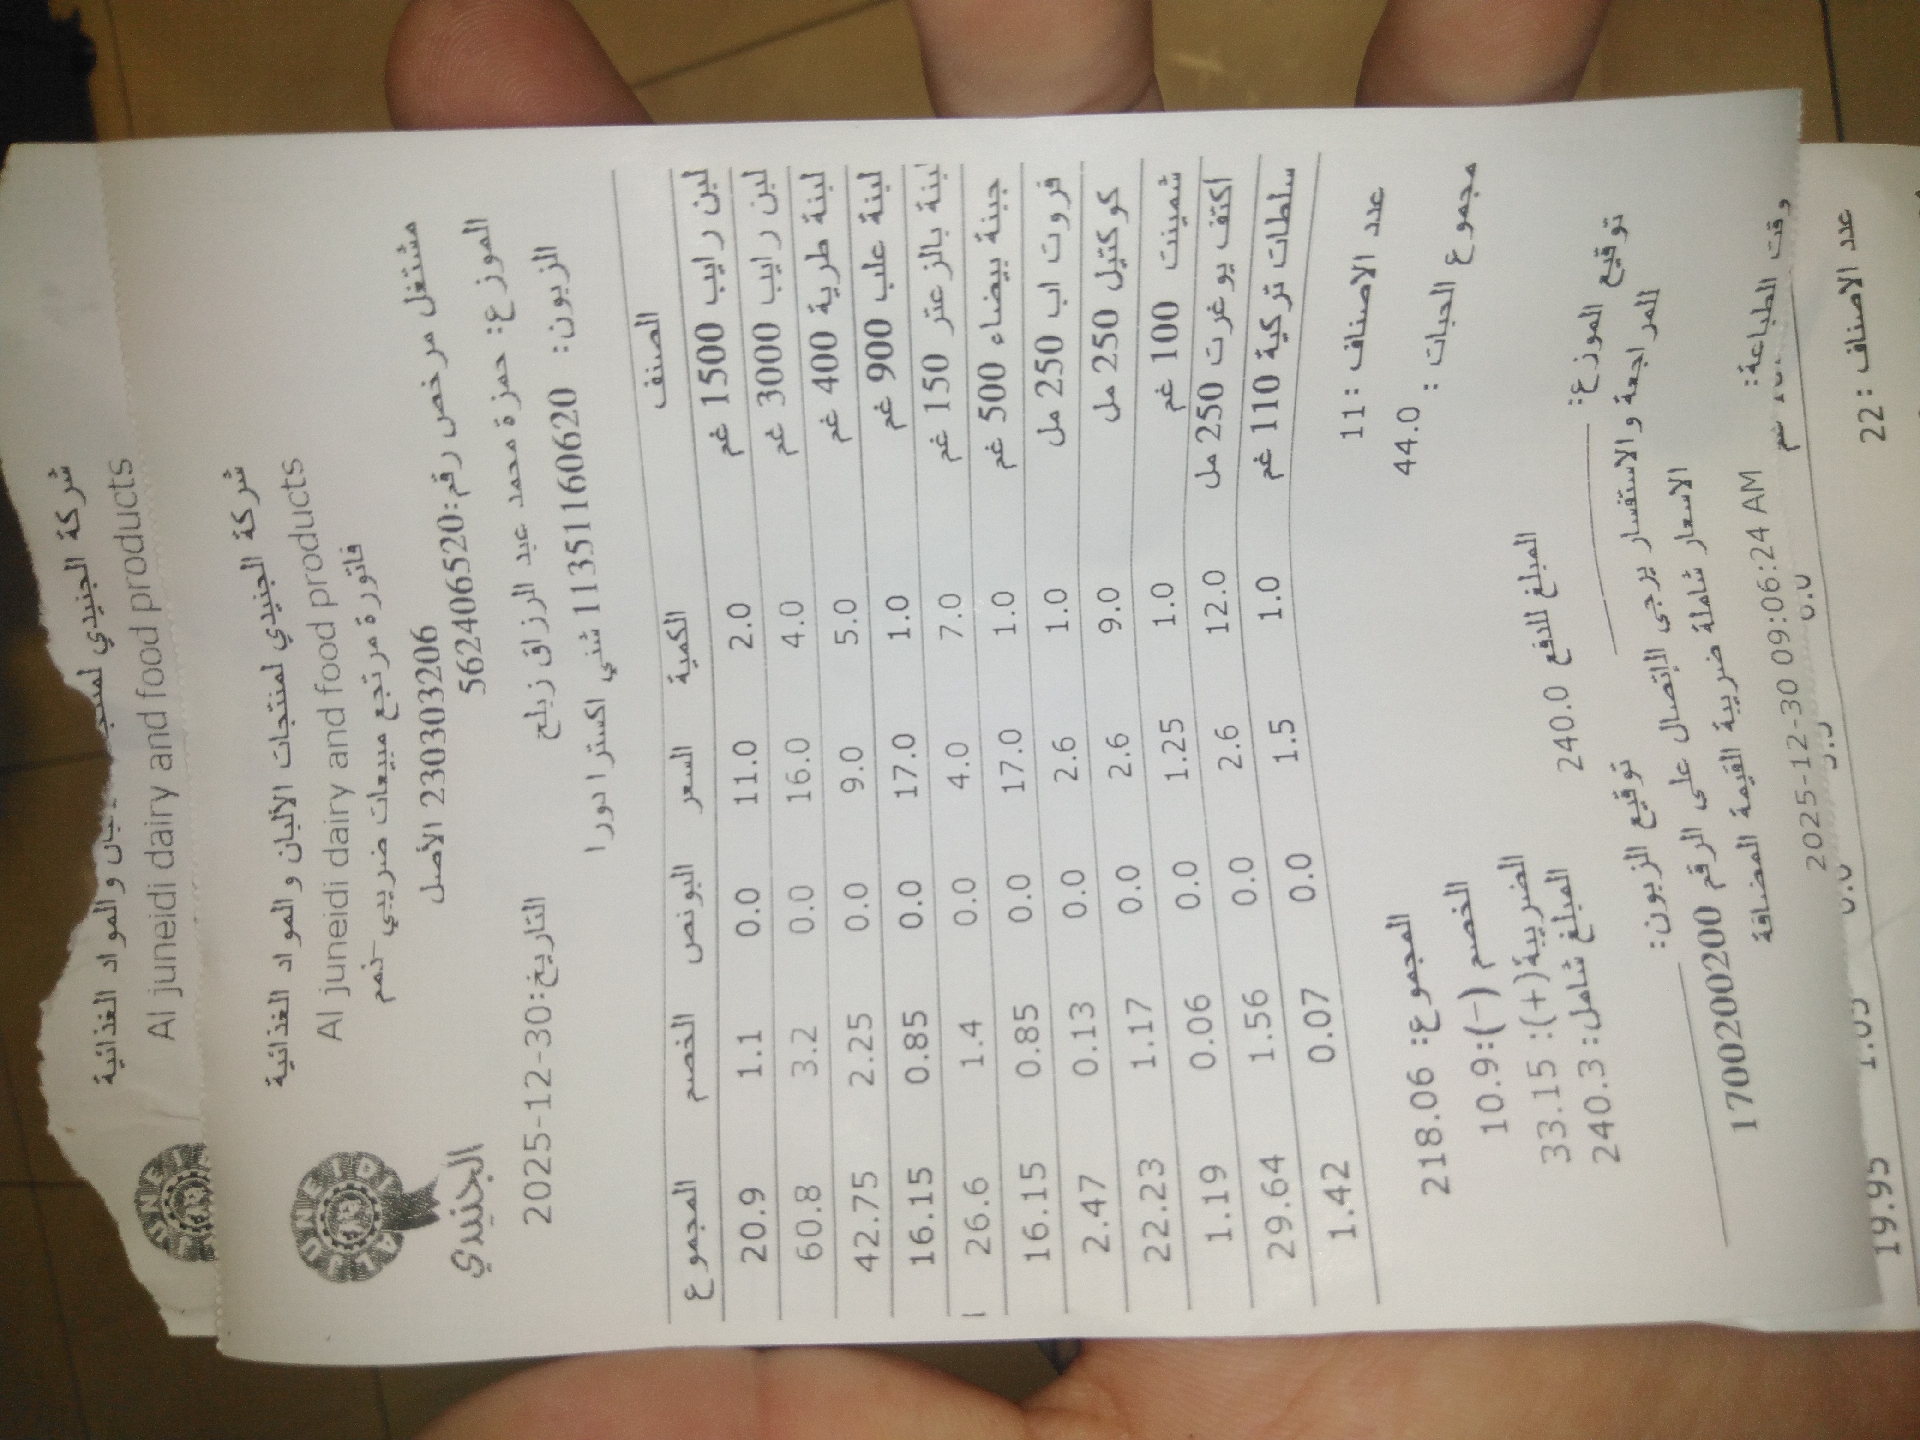 شركة الجنيدي لمنتجات الألبان والمواد الغذائية
Al juneidi dairy and food products
JUNEIDI
شركة الجنيدي لمنتجات الألبان والمواد الغذائية
Al juneidi dairy and food products
فاتورة مرتجع مبيعات ضريبي
مشتغل مرخص رقم:562406520
230303206 الأصل
AL JUNEIDI
الجنيدي
الموزع: حمزة محمد عبد الرزاق زبلح
التاريخ:2025-12-30
الزبون: 11351160620 شني اكسترا دورا
الصنف الكمية السعر البونص الخصم المجموع
لبن رايب 1500 غم 2.0 11.0 0.0 1.1 20.9
لبن رايب 3000 غم 4.0 16.0 0.0 3.2 60.8
لبنة طرية 400 غم 5.0 9.0 0.0 2.25 42.75
لبنة علب 900 غم 1.0 17.0 0.0 0.85 16.15
لبنة بالزعتر 150 غم 7.0 4.0 0.0 1.4 26.6
جبنة بيضاء 500 غم 1.0 17.0 0.0 0.85 16.15
فروت اب 250 مل 1.0 2.6 0.0 0.13 2.47
كوكتيل 250 مل 9.0 2.6 0.0 1.17 22.23
شمينت 100 غم 1.0 1.25 0.0 0.06 1.19
اكتف يوغرت 250 مل 12.0 2.6 0.0 1.56 29.64
سلطات تركية 110 غم 1.0 1.5 0.0 0.07 1.42
عدد الاصناف : 11
المجموع: 218.06
مجموع الحبات : 44.0
الخصم (-):10.9
الضريبة(+): 33.15
المبلغ للدفع 240.0
المبلغ شامل:240.3
توقيع الموزع:
توقيع الزبون:
للمراجعة والاستفسار يرجى الإتصال على الرقم 1700200200
الاسعار شاملة ضريبة القيمة المضافة
وقت الطباعة: 2025-12-30 09:06:24 AM
19.95
عدد الاصناف : 22